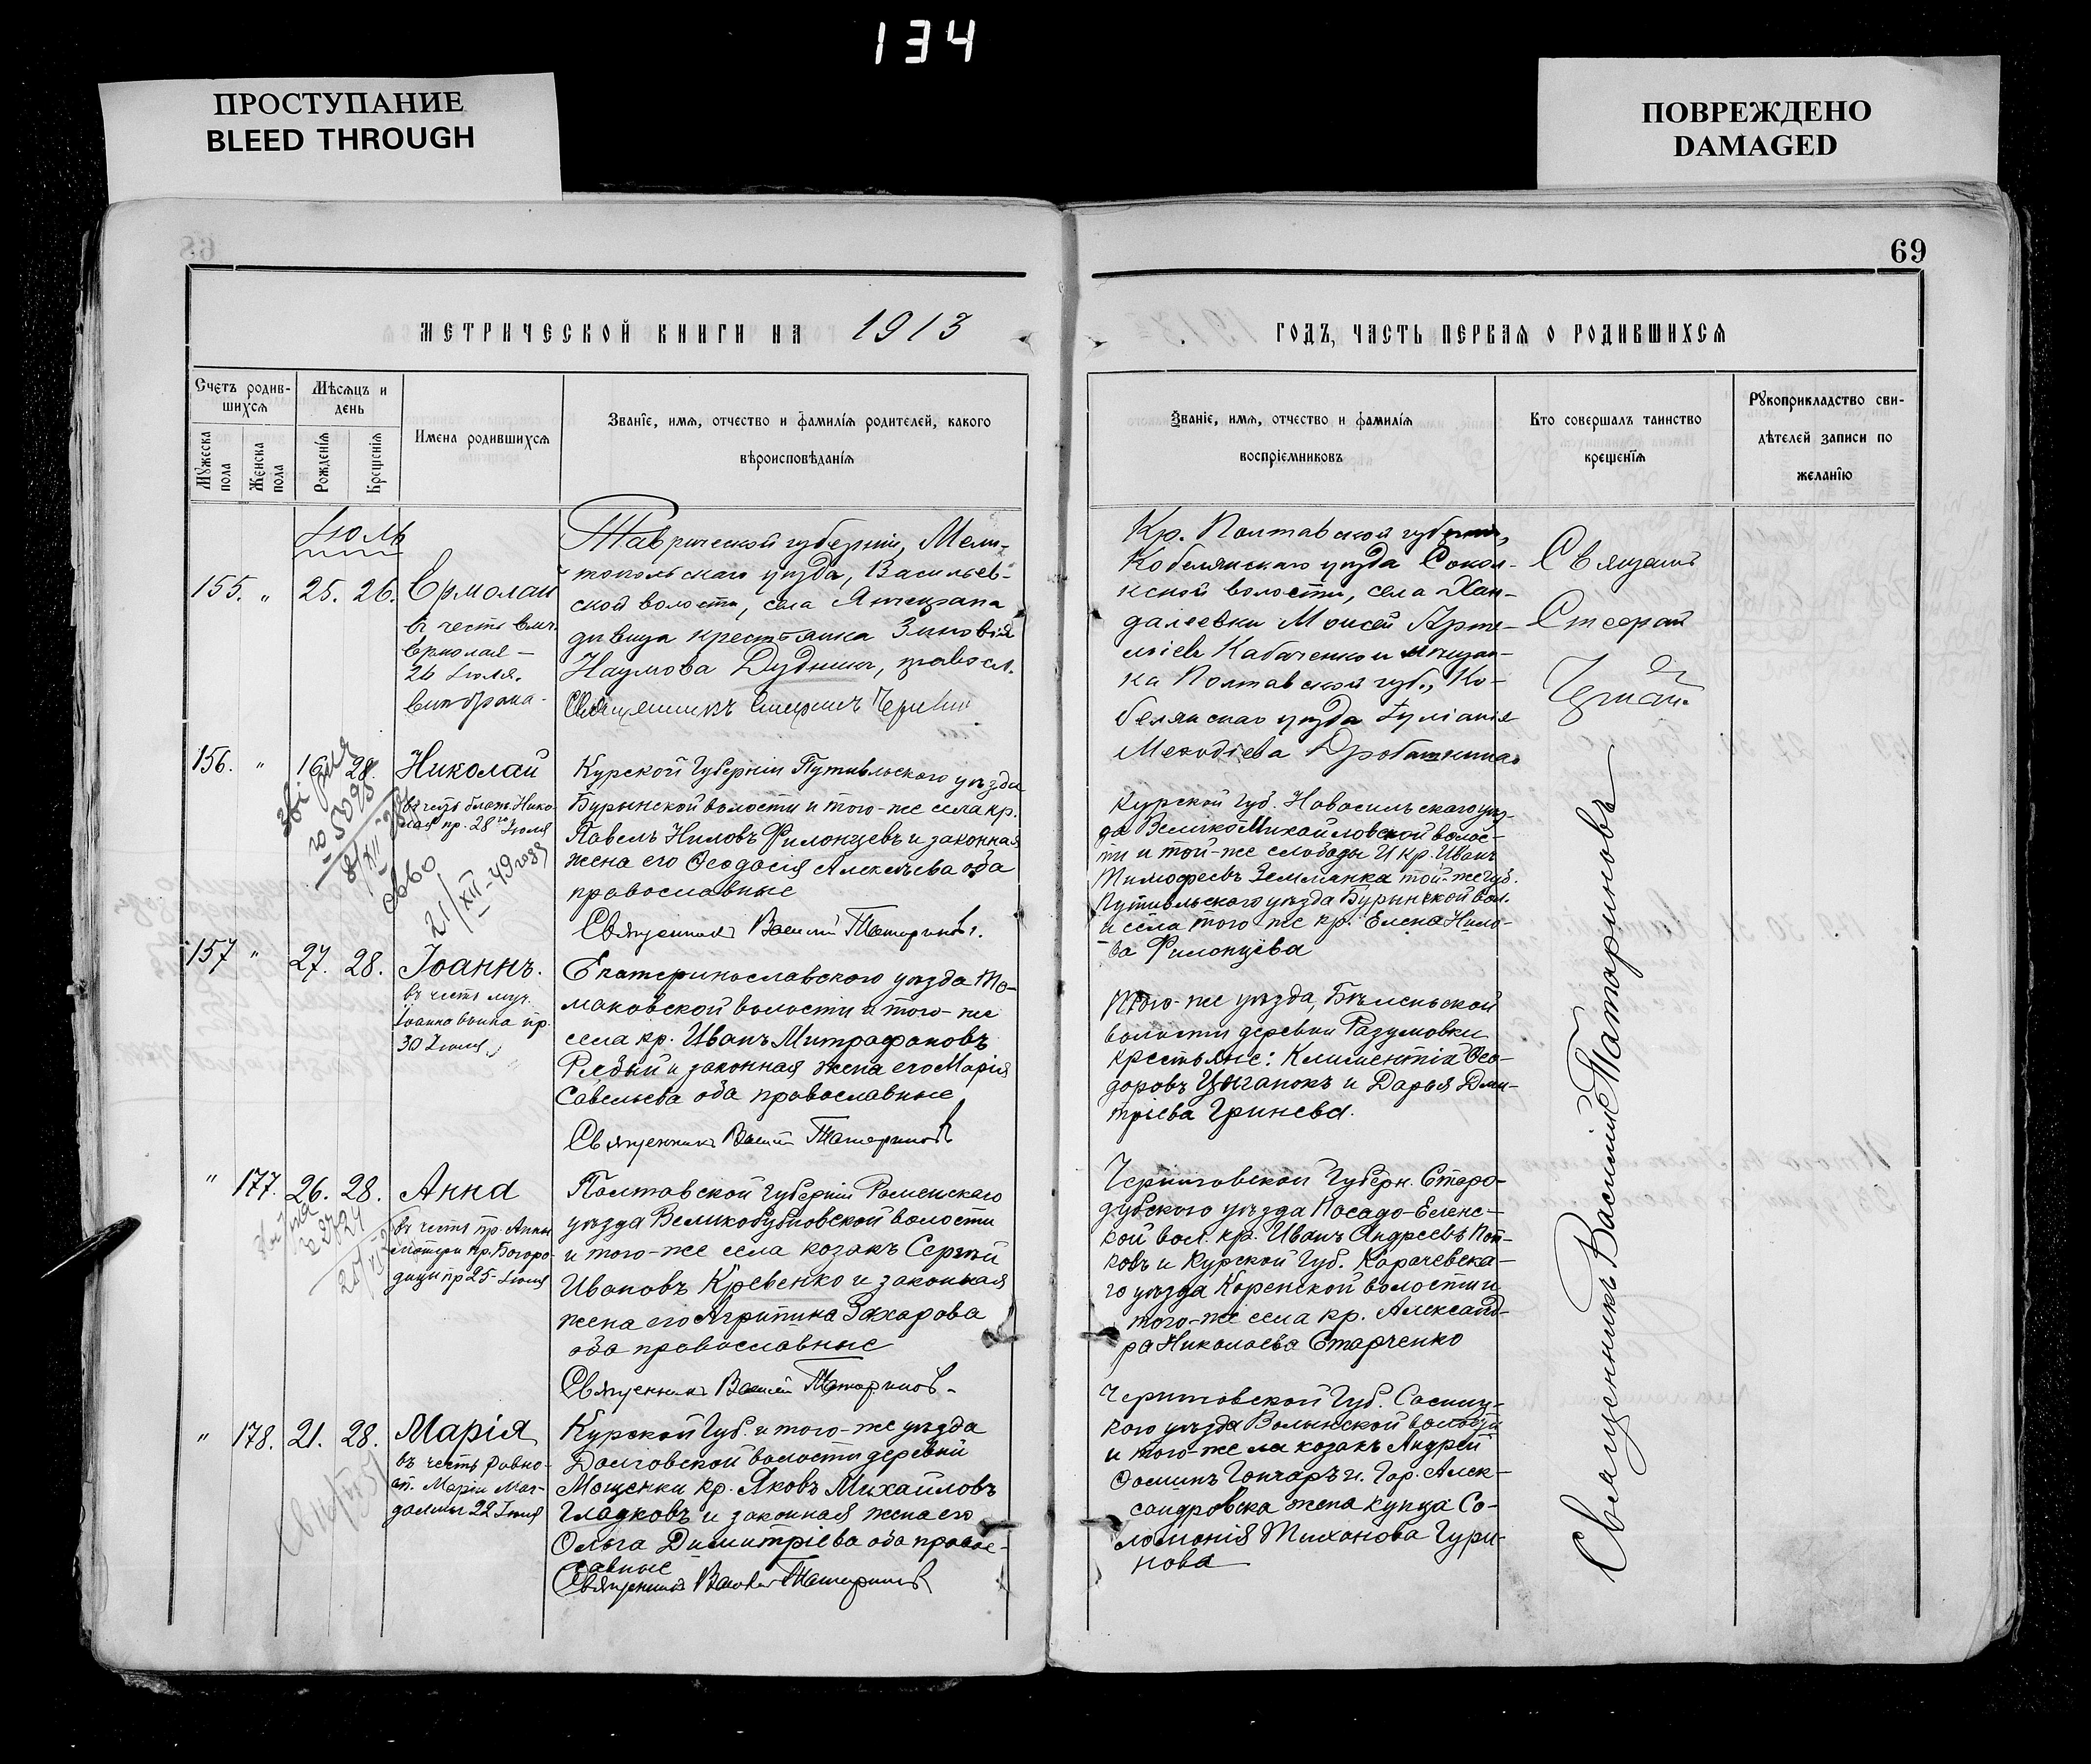 134
ПРОСТУПАНИЕ
BLEED THROUGH
ПОВРЕЖДЕНО
DAMAGED
69
МЕТРИЧЕСКОЙ КНИГИ НА 1913
ГОДЪ, ЧАСТЬ ПЕРВАЯ О РОДИВШИХСЯ
Счетъ родив-
шихся
Мужеска пола
Женска пола
Мѣсяцъ и
день
Рожденія
Крещенія
Имена родившихся
Званіе, имя, отчество и фамилія родителей, какого
вѣроисповѣданія
Званіе, имя, отчество и фамилія
воспріемниковъ
Кто совершалъ таинство
крещенія
Рукоприкладство сви-
дѣтелей записи по
желанію
Іюль
155. " 25. 26. Ермолай
въ честь
Ермолая —
26 Іюля.
Таврической губерніи, Мели-
топольскаго уѣзда, Васильев-
ской волости, села Янчекрака
дѣвица крестьянка Зиновія
Наумова Дудник, правосл.
Священникъ
Кр. Полтавской губерніи,
Кобелякскаго уѣзда Сокол-
кской волости, села Хан-
далеевки Моисей Арте-
міевъ Кабаченко и мѣщан-
ка Полтавской губ., Ко-
белякскаго уѣзда Іуліанія
Меѳодіева
Священ.
156. " 16 28. Николай
въ честь блаж. Нико-
лая пр. 28го Іюля
8/XII
21/XII-49 года
Курской Губерніи Путивльскаго уѣзда
Бурынской волости и того-же села кр.
Павелъ Ниловъ Филонцевъ и законная
жена его Ѳеодосія Алексѣева оба
православные
Священникъ Василій Татариновъ.
Курской Губ. Новосильскаго уѣз-
да ВеликоМихайловской волос-
ти и той-же слободы кр. Иванъ
Тимофеевъ Землянка той-же губ.
Путивльского уѣзда Бурынской вол.
и села того же кр. Елена Нило-
ва Филонцева
157 " 27. 28. Іоаннъ.
въ честь муч.
Іоанна воина пр.
30 Іюля
Екатеринославского уѣзда То-
маковской волости и того-же
села кр. Иванъ Митрофановъ
Рябый и законная жена его Марія
Савельева оба православные
Священникъ Василій Татариновъ
Того-же уѣзда, Бѣленьской
волости деревни Разумовки
крестьяне: Климентій Ѳео-
доровъ Цыганокъ и Дарья Дми-
тріева Гринева.
" 177. 26. 28. Анна
въ честь пр. Анны
матери пр. Богоро-
дицы пр 25 Іюля
Полтавской Губерніи Роменскаго
уѣзда Великобубновской волости
и того-же села козакъ Сергѣй
Ивановъ Кревенко и законная
жена его Агрипина Захарова
оба православные
Священникъ Василій Татариновъ.
Черниговской Губерн. Старо-
дубского уѣзда Посадо-Еленс-
кой вол. кр. Иванъ Андреевъ Поп-
ковъ и Курской Губ. Карачевска-
го уѣзда Коренской волости и
того-же села кр. Александ-
ра Николаева Старченко
" 178. 21. 28. Марія
въ честь равно-
ап. Маріи Маг-
далины 22 Іюля
Курской Губ. и того-же уѣзда
Долговской волости деревни
Мощенки кр. Яковъ Михайловъ
Гладковъ и законная жена его
Ольга Димитріева оба право-
славные
Священникъ Василій Татариновъ
Черниговской Губ. Сосниц-
кого уѣзда Волынской волости
и того-же козакъ Андрей
Ѳоминъ Гончаръ и Гор. Алек-
сандровска жена купца Со-
ломонія Тихонова Гури-
нова
Священникъ Василий Татариновъ